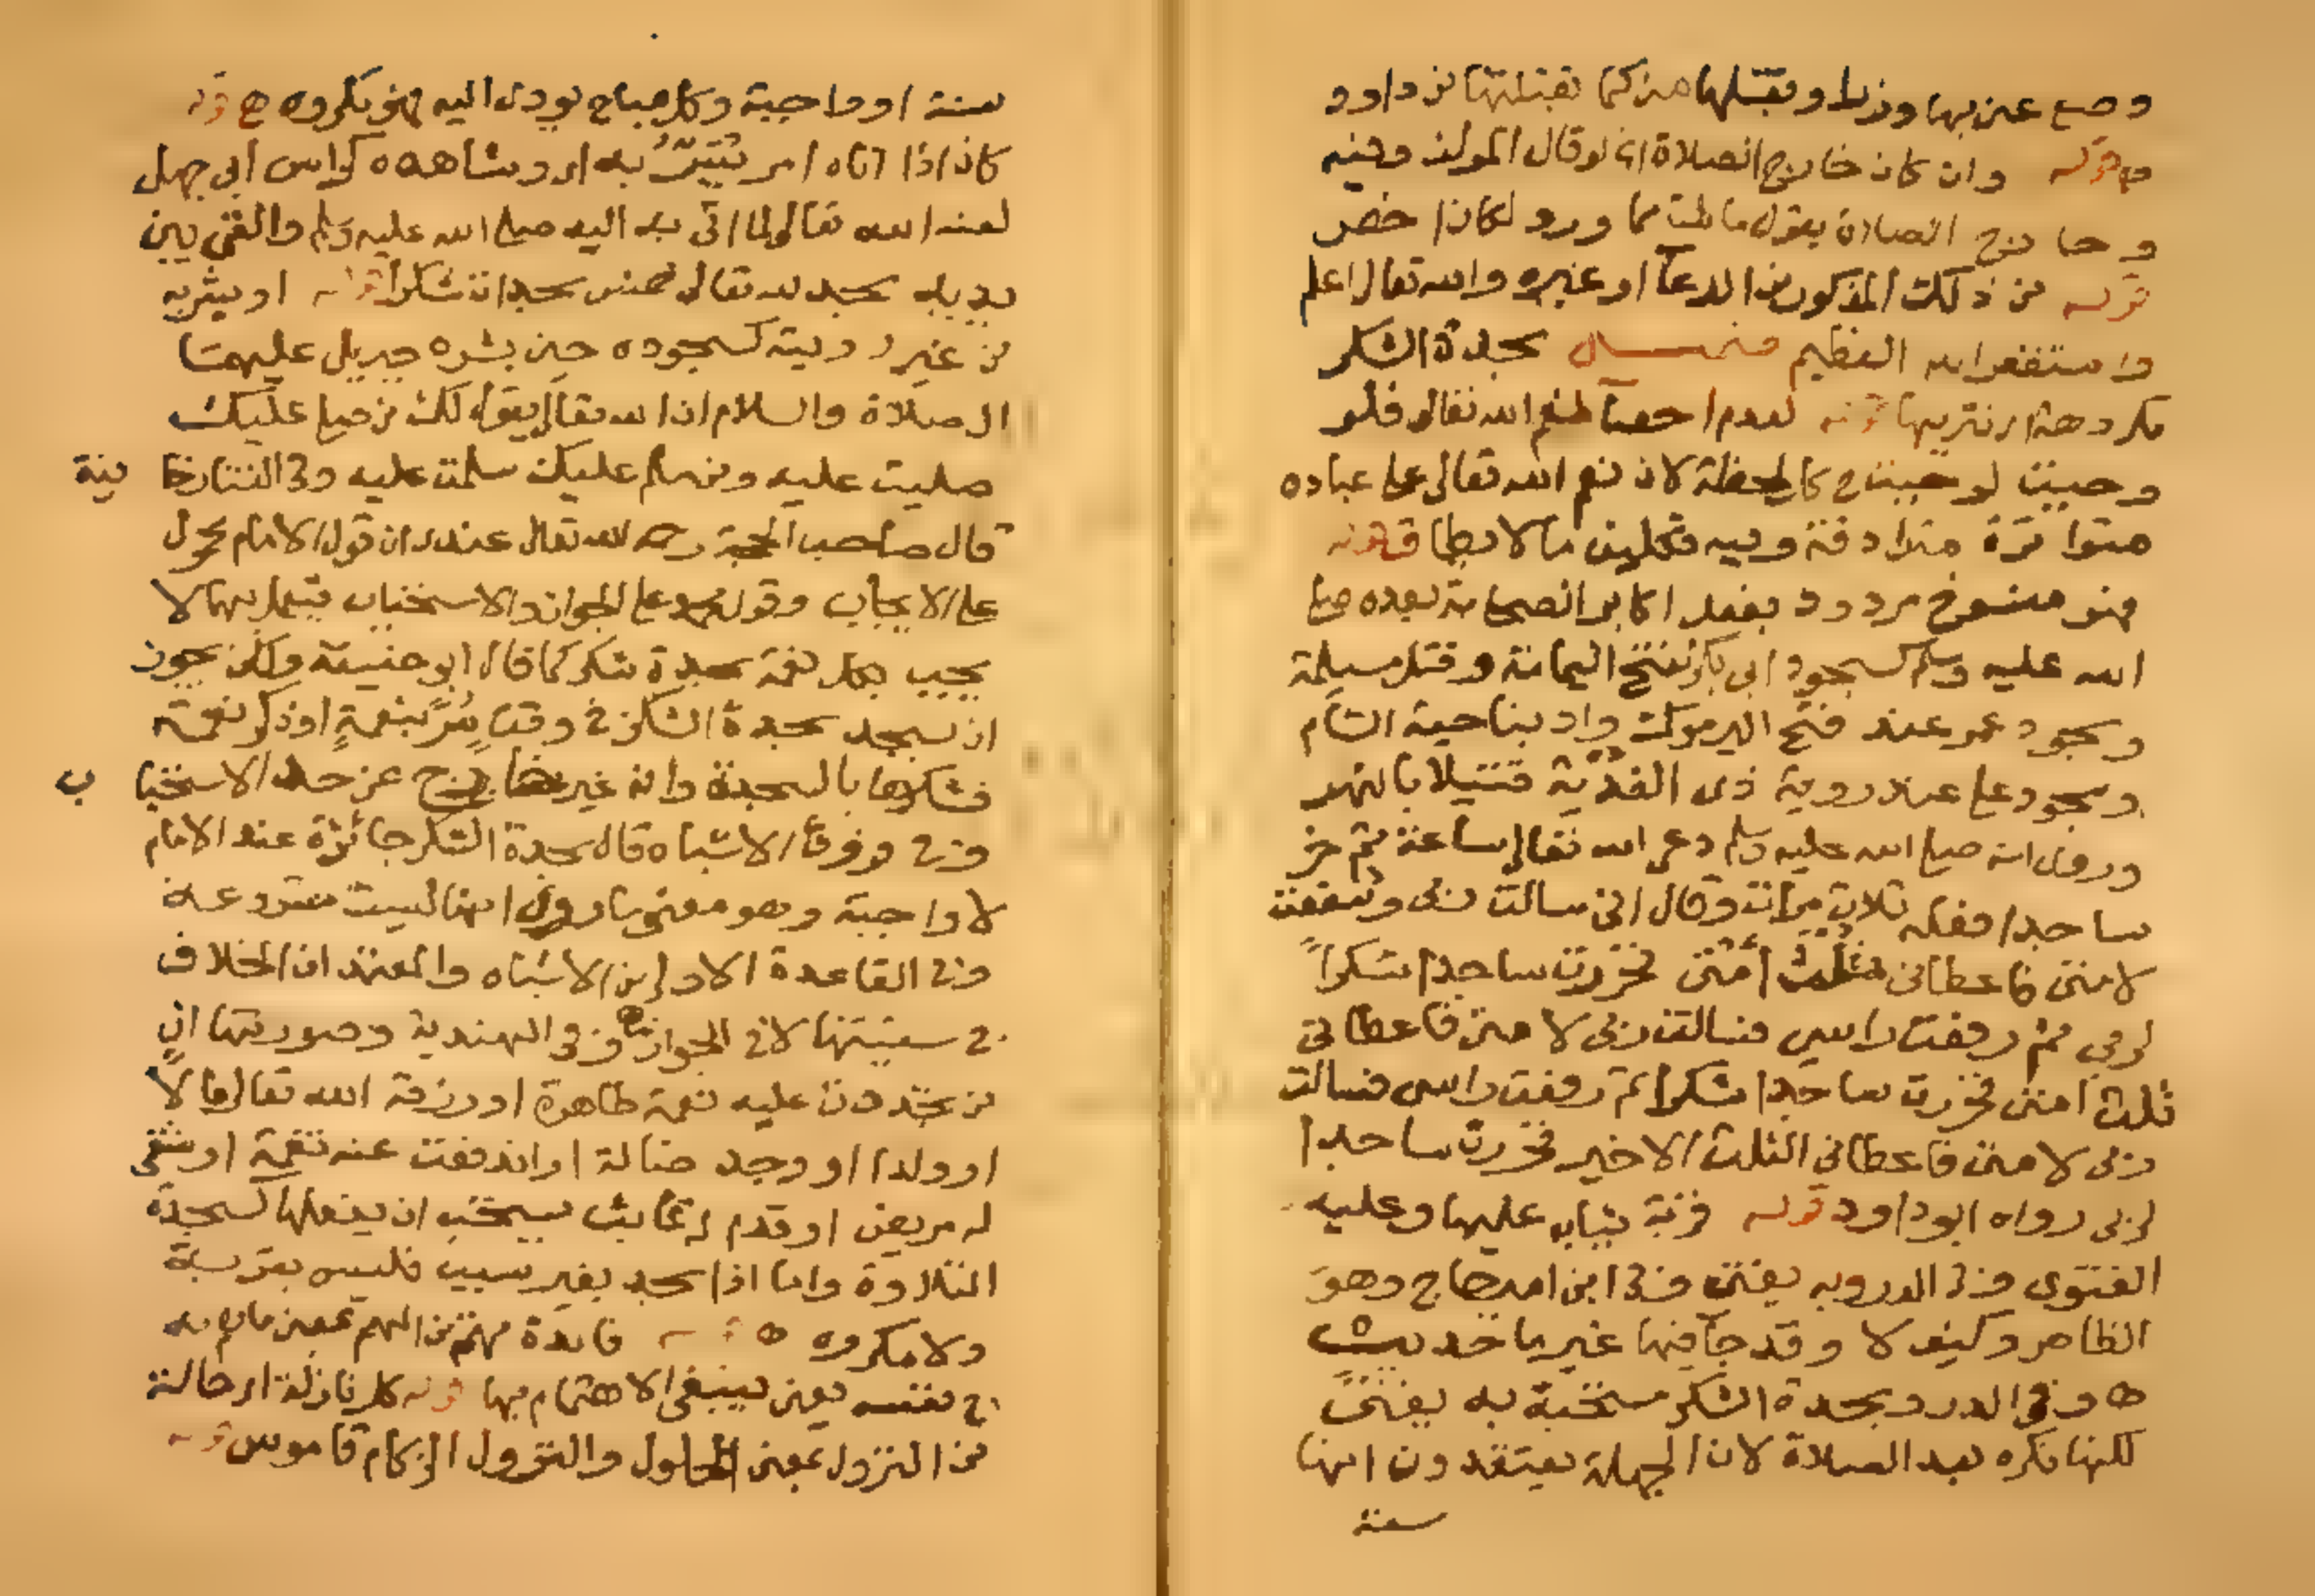 وضع عني بها وزرا وتقبلها مني كما تقبلتها من داود
قوله وان كان خارج الصلاة اي لو قال المولف وفيه
وخارج الصلاة يقول ما شا مما ورد لكان اخصر
قوله من ذلك المذكور من الدعا او غيره والله تعالى اعلم
واستغفر الله العظيم فصل سجدة الشكر
مكروهة قوله لعدم احصا نعم الله تعالى فلو
وجبت لوجبت في كل لحظة لان نعم الله تعالى على عباده
متواترة مترادفة وفيه تكليف ما لا يطاق قوله
فهو منسوخ مردود بفعل اكابر الصحابة بعده صلى
الله عليه وسلم كسجود ابي بكر لفتح اليمامة وقتل مسيلمة
وسجود عمر عند فتح اليرموك واد بناحية الشام
وسجود علي عند روية ذي الثدية قتيلا بالنهر
وروى انه صلى الله عليه وسلم دعى الله تعالى ساعة ثم خر
ساجدا فعله ثلاث مرات وقال اني سالت ربي وشفعت
لامتي فاعطاني ثلث امتي فخررت ساجدا شكراً
لربي ثم رفعت راسي فسالت ربي لامتي فاعطاني
ثلث امتي فخررت ساجدا شكرا ثم رفعت راسي فسالت
ربي لامتي فاعطاني الثلث الاخير فخررت ساجدا
لربي رواه ابو داود قوله قربة يثاب عليها وعليه
الفتوى وفي الدر وبه يفتى وفي ابن امير حاج وهو
الظاهر وكيف لا وقد جآ فيها غير ما حديث
ه وفي الدر وسجدة الشكر مستحبة به يفتى
لكنها تكره بعد الصلاة لان الجهلة يعتقدون انها
سنة
سنة او واجبة وكل مباح يودى اليه فهو مكروه ح قوله
كان اذا اتاه امر يُسَرُّ به او وشاهده كراس ابي جهل
لعنه الله تعالى لما اتي به اليه صلى الله عليه وسلم والقي بين
يديه سجد لله تعالى خمس سجدات شكرا قوله او بشر به
من غير روية كسجوده حين بشره جبريل عليهما
الصلاة والسلام ان الله تعالى يقول لك من صلى عليك
صليت عليه ومن سلم عليك سلمت عليه وفي التتارخا نية
قال صاحب الحجة رحمه الله تعالى عندي ان قول الامام محمول
على الايجاب وقول محمد على الجواز والاستحباب فيعمل بهما لا
يجب بكل نعمة سجدة شكر كما قال ابو حنيفة ولكن يجوز
ان يسجد سجدة الشكر في وقت سُرَّ بنعمةٍ او ذكر نعمة
فشكرها بالسجدة وانه غير خارج عن حد الاستحبا ب
وفي فروق الاشباه قال سجدة الشكر جائزة عند الامام
لا واجبة وهو معنى ما روي انها ليست مشروعة
وفي القاعدة الاولى من الاشباه والمعتمد ان الخلاف
في سنيتها لا في الجواز وفي الهندية وصورتها ان
من تجددت عليه نعمة ظاهرة او رزقه الله تعالى مالا
او ولدا او وجد ضالة او اندفعت عنه نقمة او شفى
له مريض او قدم له غائب يستحب ان يفعلها كسجدة
التلاوة واما اذا سجد بغير سبب فليس بقربة
ولا مكروه ه قوله فائدة مهمة من المهم بمعنى ما يهم به
في نفسه يعني ينبغي الاهتمام بها قوله كل نازلة اي حالة
من النزول بمعنى الحلول والنزول الزكام قاموس قوله